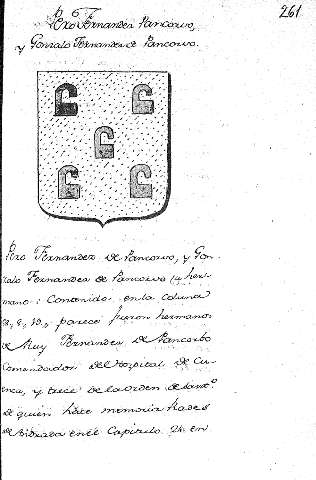 261
Pero Fernandez Pancorvo,
y Gonzalo Fernandez de Pancorvo.
Pero Fernandez de Pancorvo, y Gon-
zalo Fernandez de Pancorvo su her-
mano: Contenidos en la coluna
parece fueron hermanos
de Ruy Fernandez de Pancorbo
Comendador del Hospital de Cu-
enca, y trece de la orden de Sant.º
de quien hace memoria Rades
de Andrada en el Capitulo 24 en